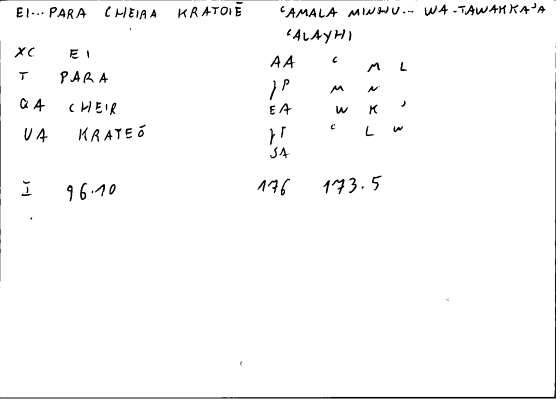 EI...PARA CHEIRA KRATOIĒ ʿAMALA MINHU... WA-TAWAKKAʾA
ʿALAYHI
XC EI AA ʿ M L
T PARA ƷP M N
QA CHEIR EA W K ʾ
UA KRATEŌ ƷT ʿ L W
SA
Ī 96.10 176 173.5